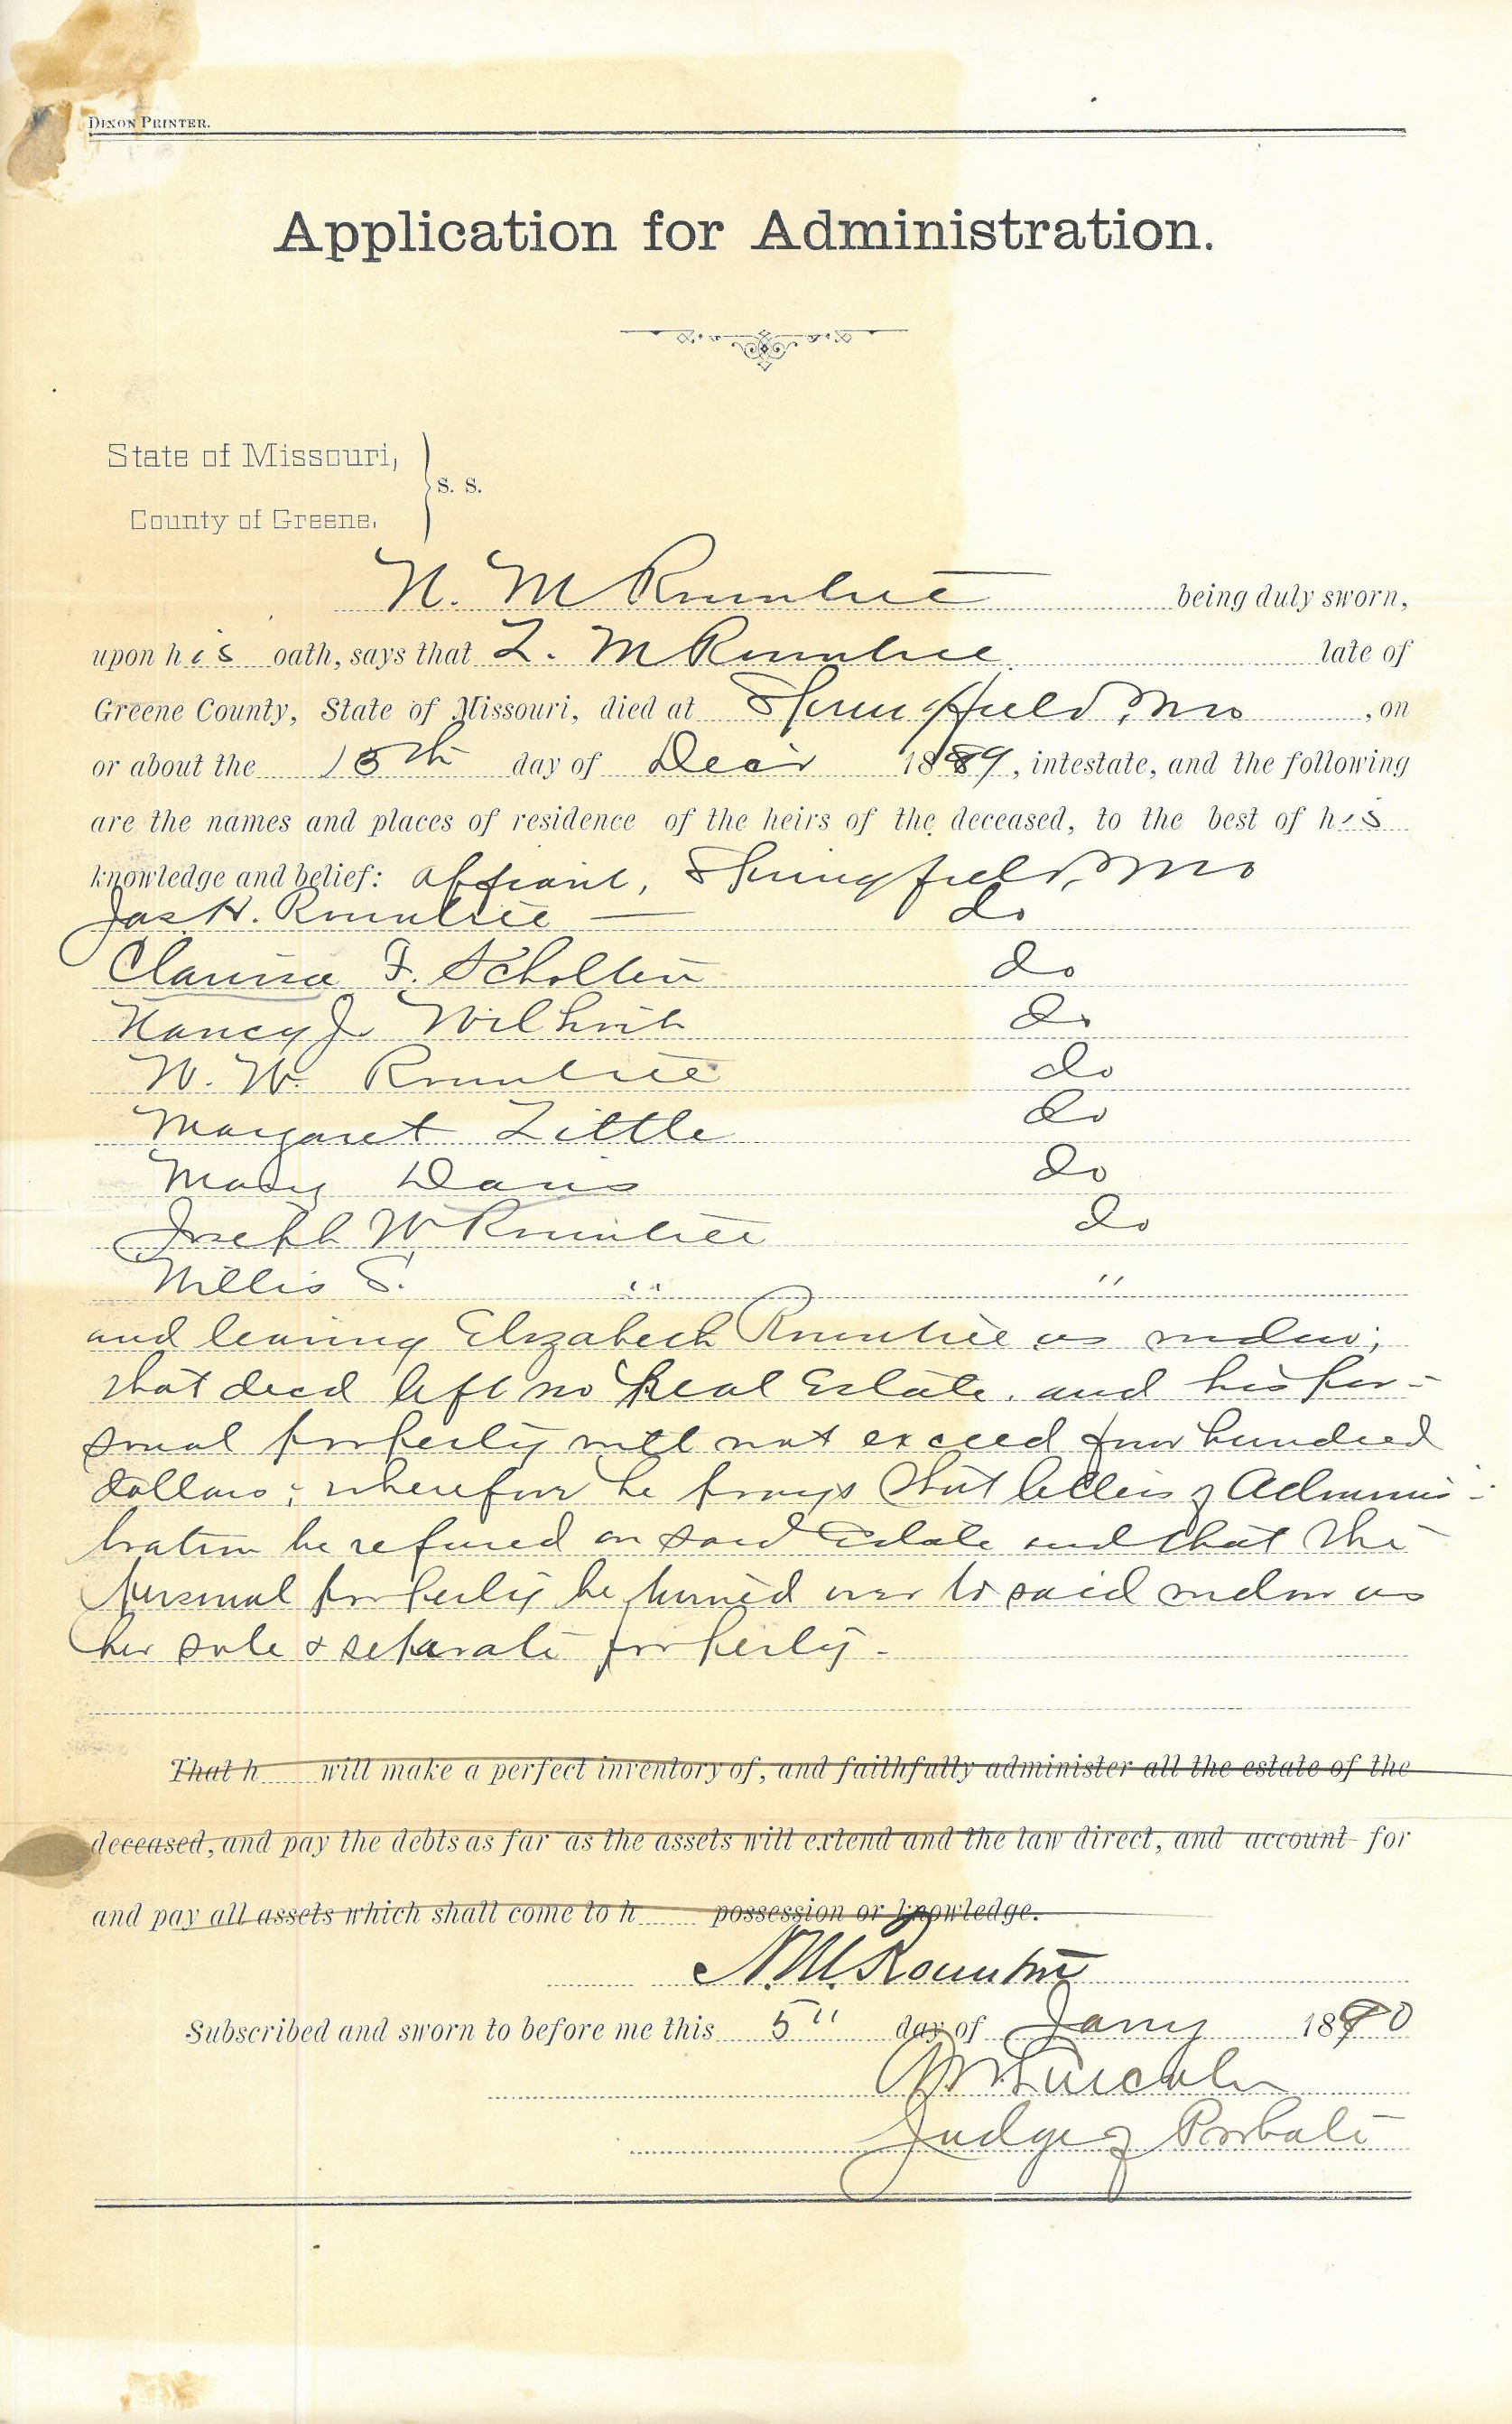 DIXON PRINTER.
Application for Administration.
State of Missouri,
County of Greene.
S. S.
N. M Rountree being duly sworn,
upon his oath, says that L. M Rountree late of
Greene County, State of Missouri, died at Springfield, Mo , on
or about the day of Decr 1889, intestate, and the following
are the names and places of residence of the heirs of the deceased, to the best of his
knowledge and belief: affiant, Springfield, Mo
Jas. H. Rountree — do
Clarissa F. Scholten do
Nancy J. Wilhoit do
W. W. Rountree do
Margaret Little do
Mary Davis do
Joseph W Rountree do
Willis S. " "
and leaving Elizabeth Rountree as widow;
that decd left no Real Estate. and his per-
sonal property will not exceed four hundred
dollars; wherefore he prays that letters of Adminis-
tration be refused on said Estate and that the
personal property be turned over to said widow as
her sole & separate property -
That h will make a perfect inventory of, and faithfully administer all the estate of the
deceased, and pay the debts as far as the assets will extend and the law direct, and account for
and pay all assets which shall come to h possession or knowledge.
N. M. Rountree
Subscribed and sworn to before me this 5" day of Jany 1890
Lincoln
Judge of Probate